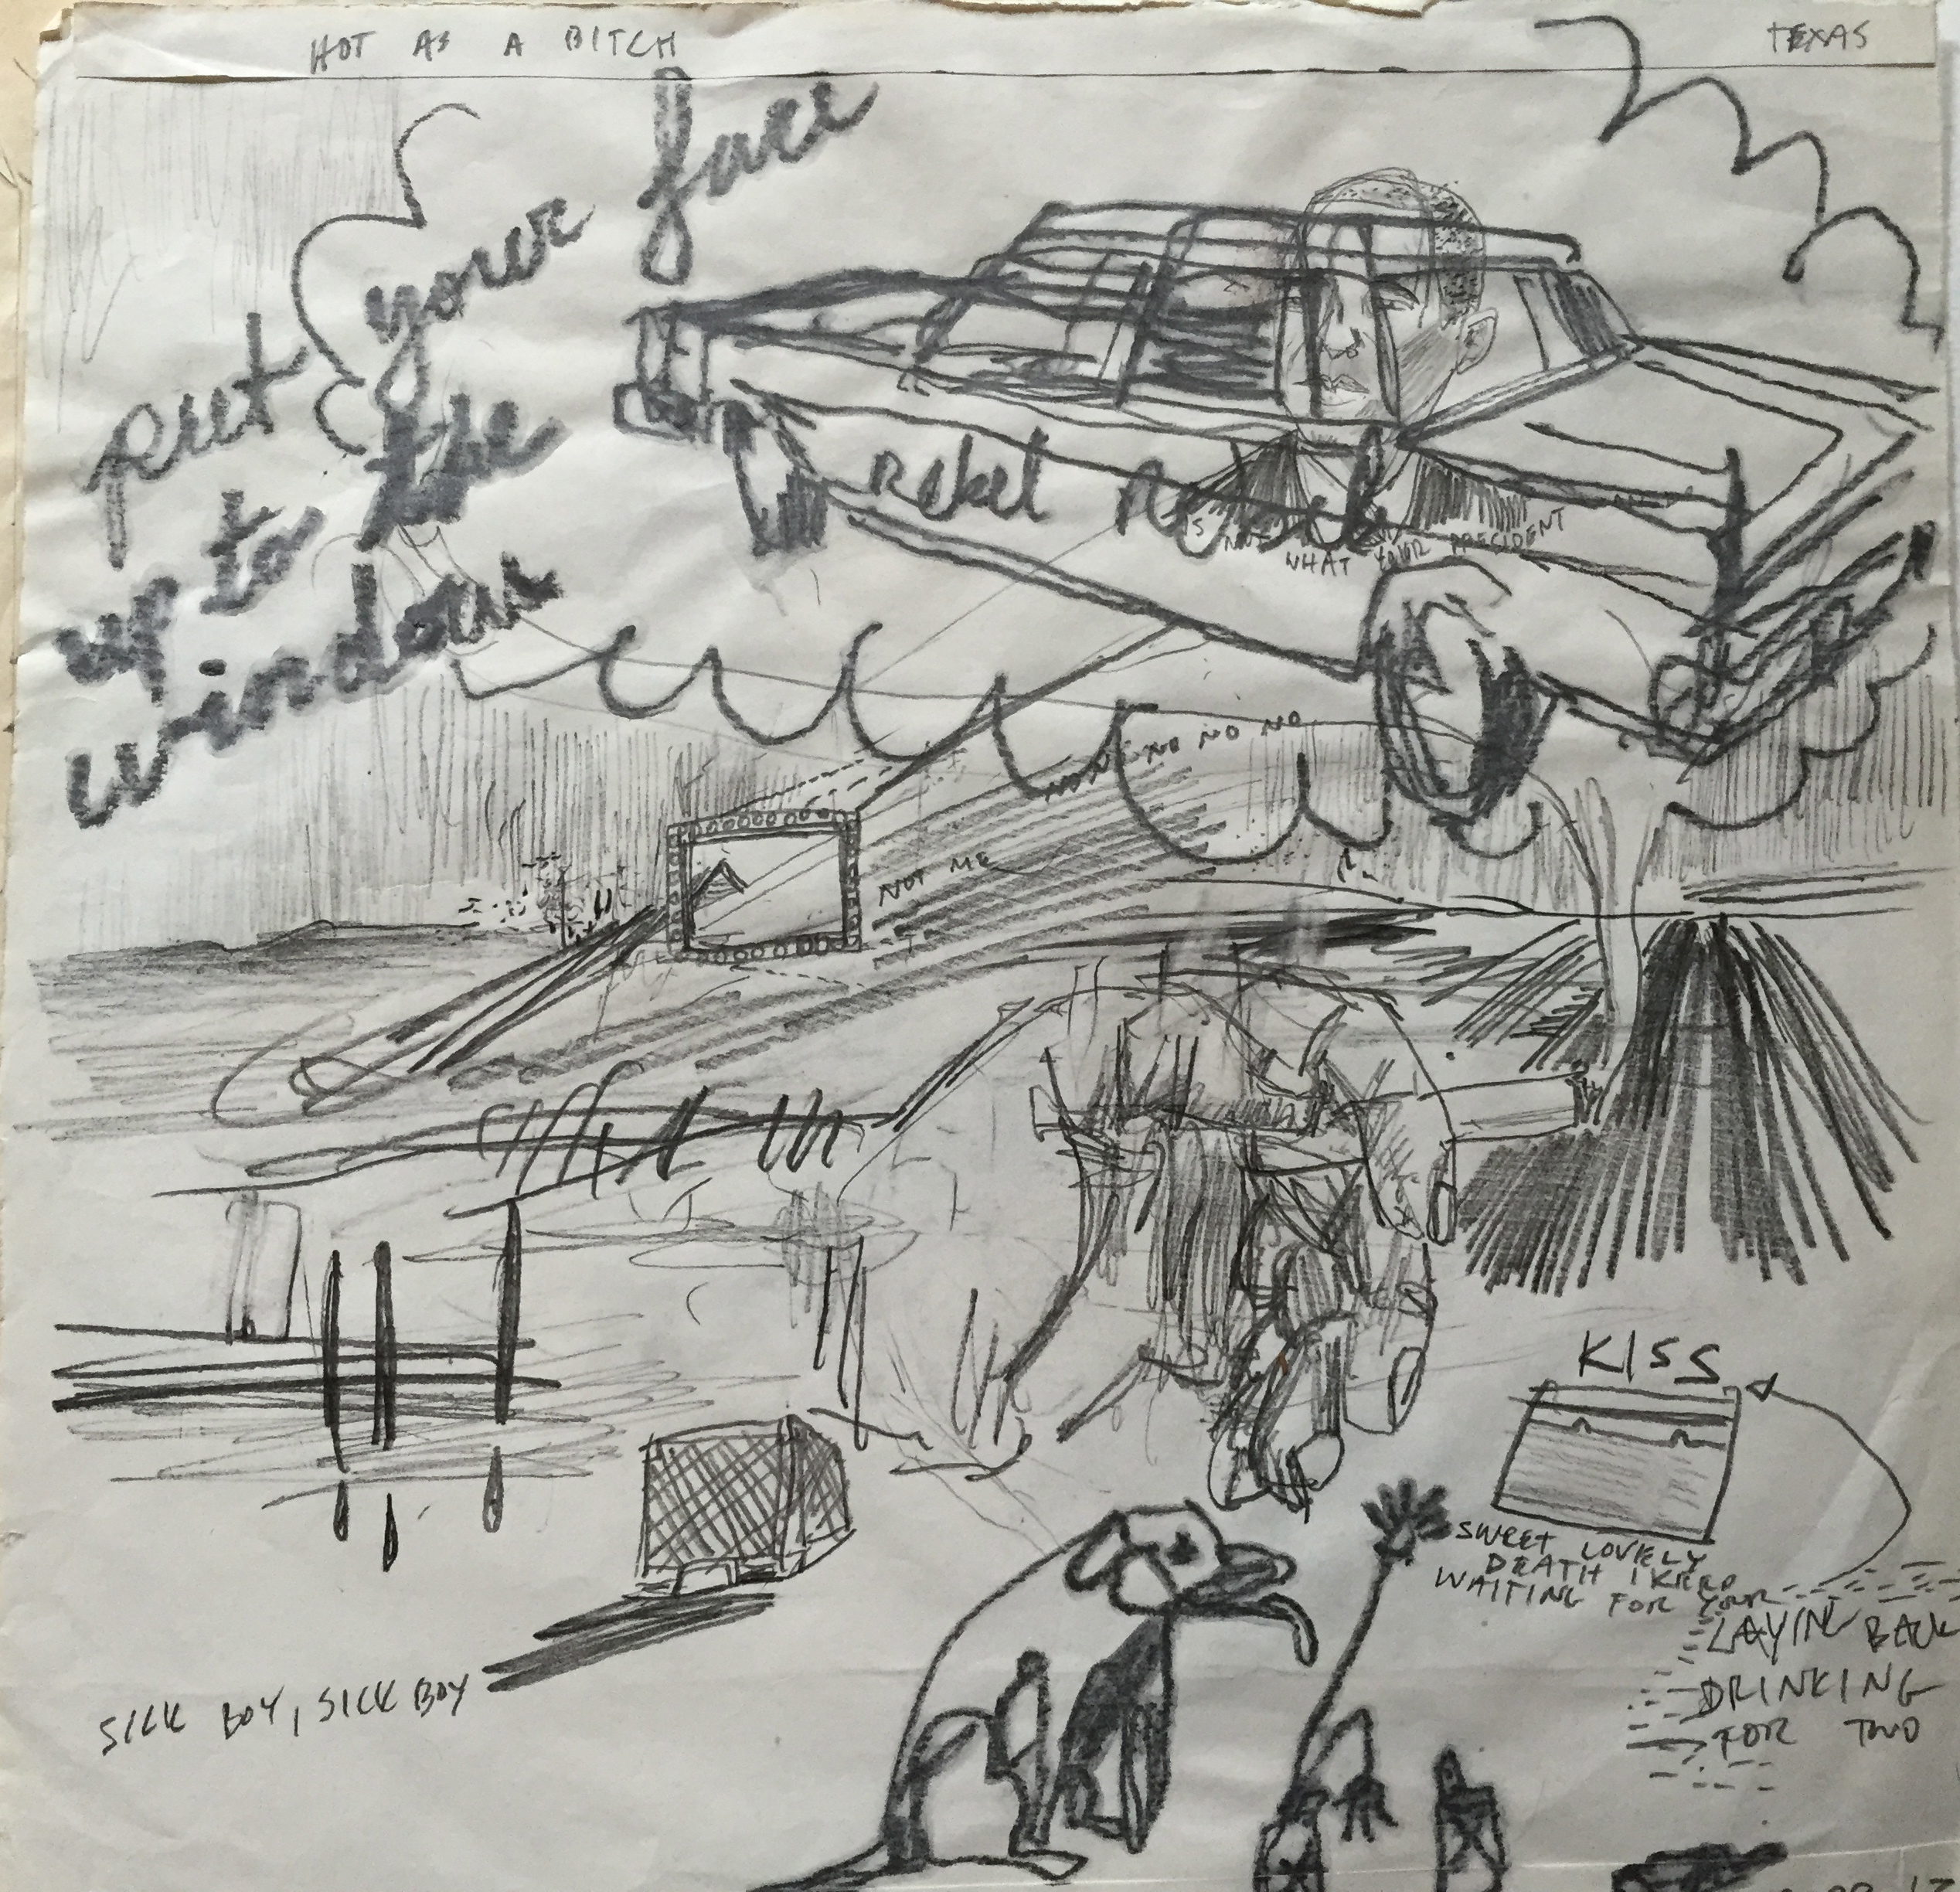 HOT AS A BITCH
TEXAS
put your face
up to the
window
rebel
IS NOT
WHAT YOUR PRESIDENT
NO NO NO NO NO
NOT ME
KISS
SWEET LOVELY
DEATH I KEEP
WAITING FOR YOUR
LAYING BACK
DRINKING
FOR TWO
SICK BOY, SICK BOY